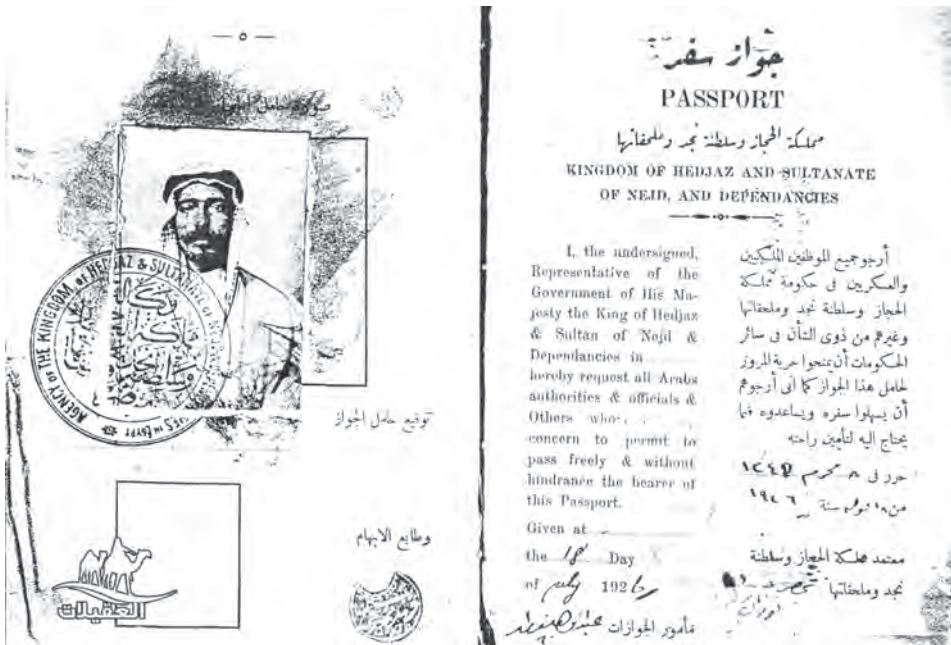 — ٥ —
صورة حامل الجواز
AGENCY OF THE KINGDOM OF HEDJAZ & SULTANATE OF
IN EGYPT
توقيع حامل الجواز
وطابع الابهام
العقيلات
جواز سفر
PASSPORT
مملكة الحجاز وسلطنة نجد وملحقاتها
KINGDOM OF HEDJAZ AND SULTANATE
OF NEJD, AND DEPENDANCIES
I, the undersigned,
Representative of the
Government of His Ma-
jesty the King of Hedjaz
& Sultan of Nejd &
Dependancies in
hereby request all Arabs
authorities & officials &
Others
concern to permit to
pass freely & without
hindrance the bearer of
this Passport.
Given at
the 18 Day
of July 1926
أرجو جميع الموظفين الملكيين
والعسكريين فى حكومة مملكة
الحجاز وسلطنة نجد وملحقاتها
وغيرهم من ذوى الشأن فى سائر
الحكومات أن يمنحوا حرية المرور
لحامل هذا الجواز كما انى أرجوهم
أن يسهلوا سفره ويساعدوه فيما
يحتاج اليه لتأمين راحته
حرر فى ٨ محرم
سنة ١٩٢٦
معتمد مملكة الحجاز وسلطنة
نجد وملحقاتها
مأمور الجوازات